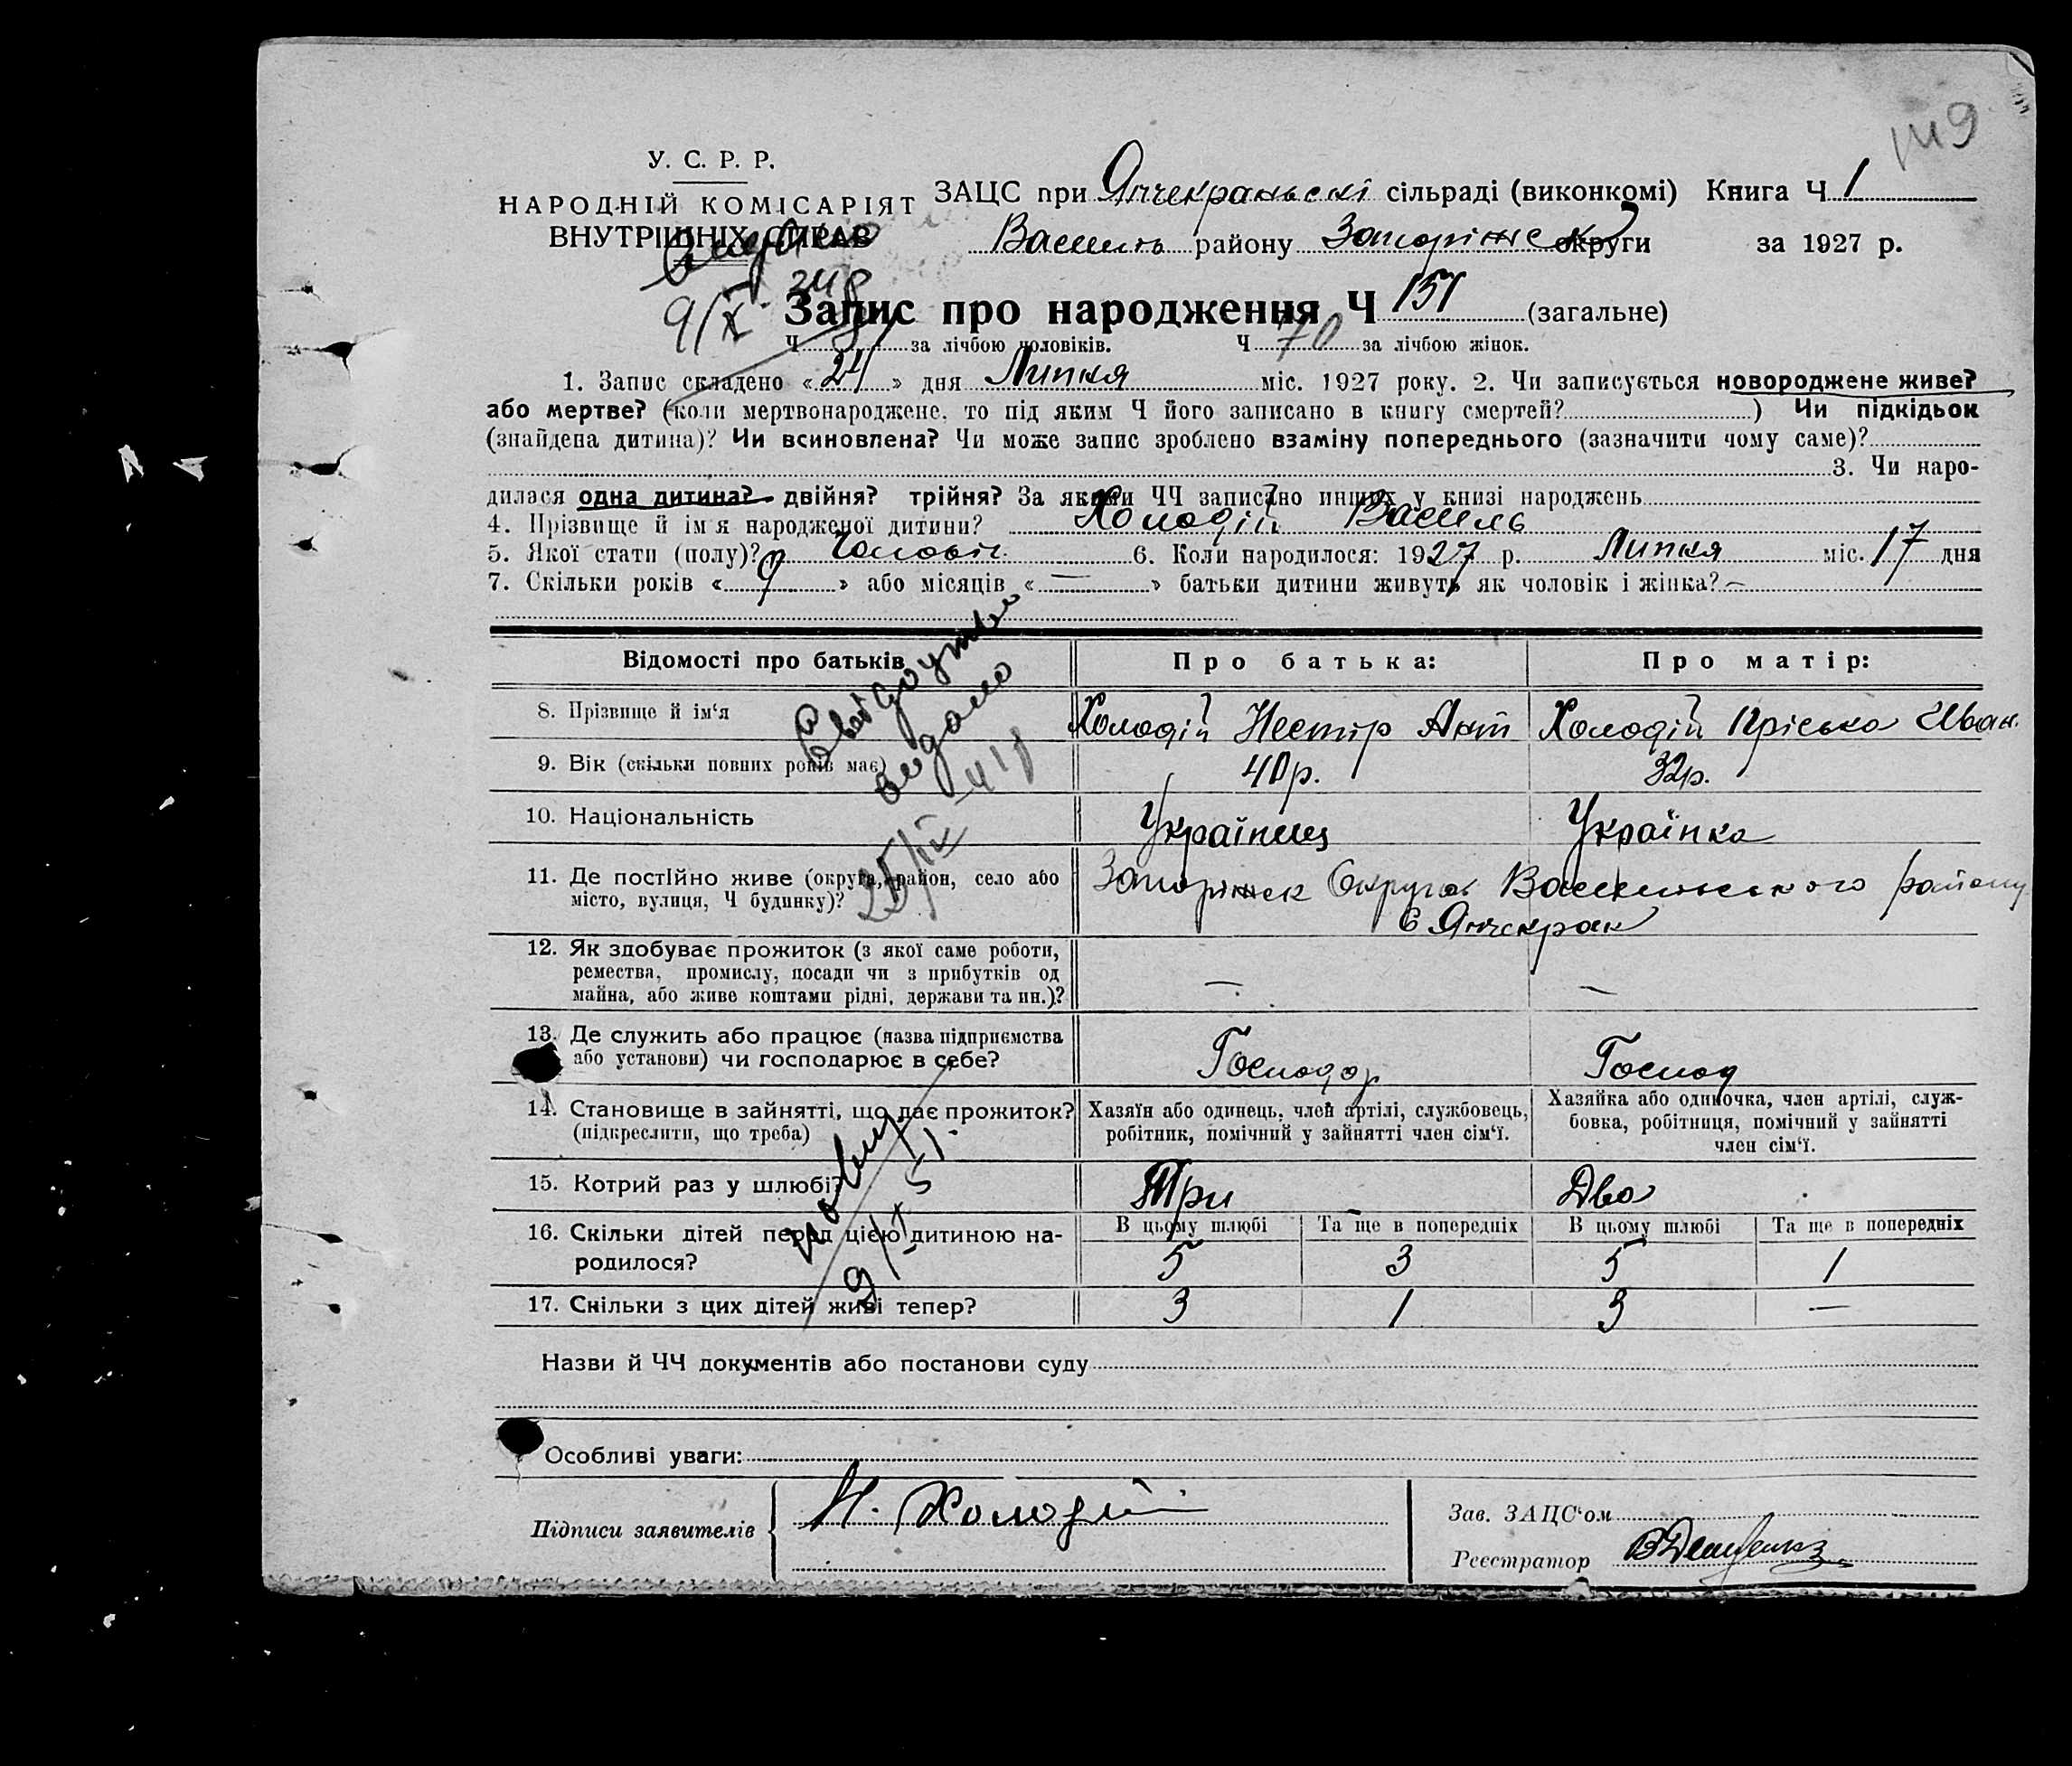 149
У. С. Р. Р.
НАРОДНІЙ КОМІСАРІЯТ
ВНУТРІШНІХ СПРАВ
ЗАЦС при Янчекраньскі сільраді (виконкомі) Книга Ч 1
Василь району Запоріжск округи за 1927 р.
9/X
Запис про народження Ч 151 (загальне)
Ч за лічбою чоловіків. Ч 70 за лічбою жінок.
1. Запис складено « 24 » дня Липня міс. 1927 року. 2. Чи записується новороджене живе?
або мертве? (коли мертвонароджене, то під яким Ч його записано в книгу смертей? ) Чи підкідьок
(знайдена дитина)? Чи всиновлена? Чи може запис зроблено взаміну попереднього (зазначити чому саме)?
3. Чи наро-
дилася одна дитина? двійня? трійня? За якими ЧЧ записано инших у книзі народжень
4. Прізвище й ім'я народженої дитини? Холодій Василь
5. Якої стати (полу)? Чоловіч. 6. Коли народилося: 1927 р. Липня міс. 17 дня
7. Скільки років « 9 » або місяців « — » батьки дитини живуть як чоловік і жінка? —
Відомості про батьків Про батька: Про матір:
8. Прізвище й ім'я Холодій Нестір Ант Холодій Пріська Иван.
9. Вік (скільки повних років має) 40 р. 32 р.
Свідоцтво
видано
25/IV
10. Національність Українец Українка
11. Де постійно живе (округа, район, село або
місто, вулиця, Ч будинку)?
Запоріжск Округа Васильського району
С Янчекрак
12. Як здобуває прожиток (з якої саме роботи,
ремества, промислу, посади чи з прибутків од
майна, або живе коштами рідні, держави та ин.)? — —
13. Де служить або працює (назва підприємства
або установи) чи господарює в себе? Господар Господ
14. Становище в зайнятті, що дає прожиток?
(підкреслити, що треба)
Хазяїн або одинець, член артілі, службовець,
робітник, помічний у зайнятті член сім'ї.
Хазяйка або одиночка, член артілі, служ-
бовка, робітниця, помічний у зайнятті
член сім'ї.
15. Котрий раз у шлюбі? Три Два
16. Скільки дітей перед цією дитиною на-
родилося?
В цьому шлюбі Та ще в попередніх В цьому шлюбі Та ще в попередніх
5 3 5 1
17. Скільки з цих дітей живі тепер? 3 1 3 —
Назви й ЧЧ документів або постанови суду
Особливі уваги:
Підписи заявителів Н. Холодій
Зав. ЗАЦС'ом
Реєстратор